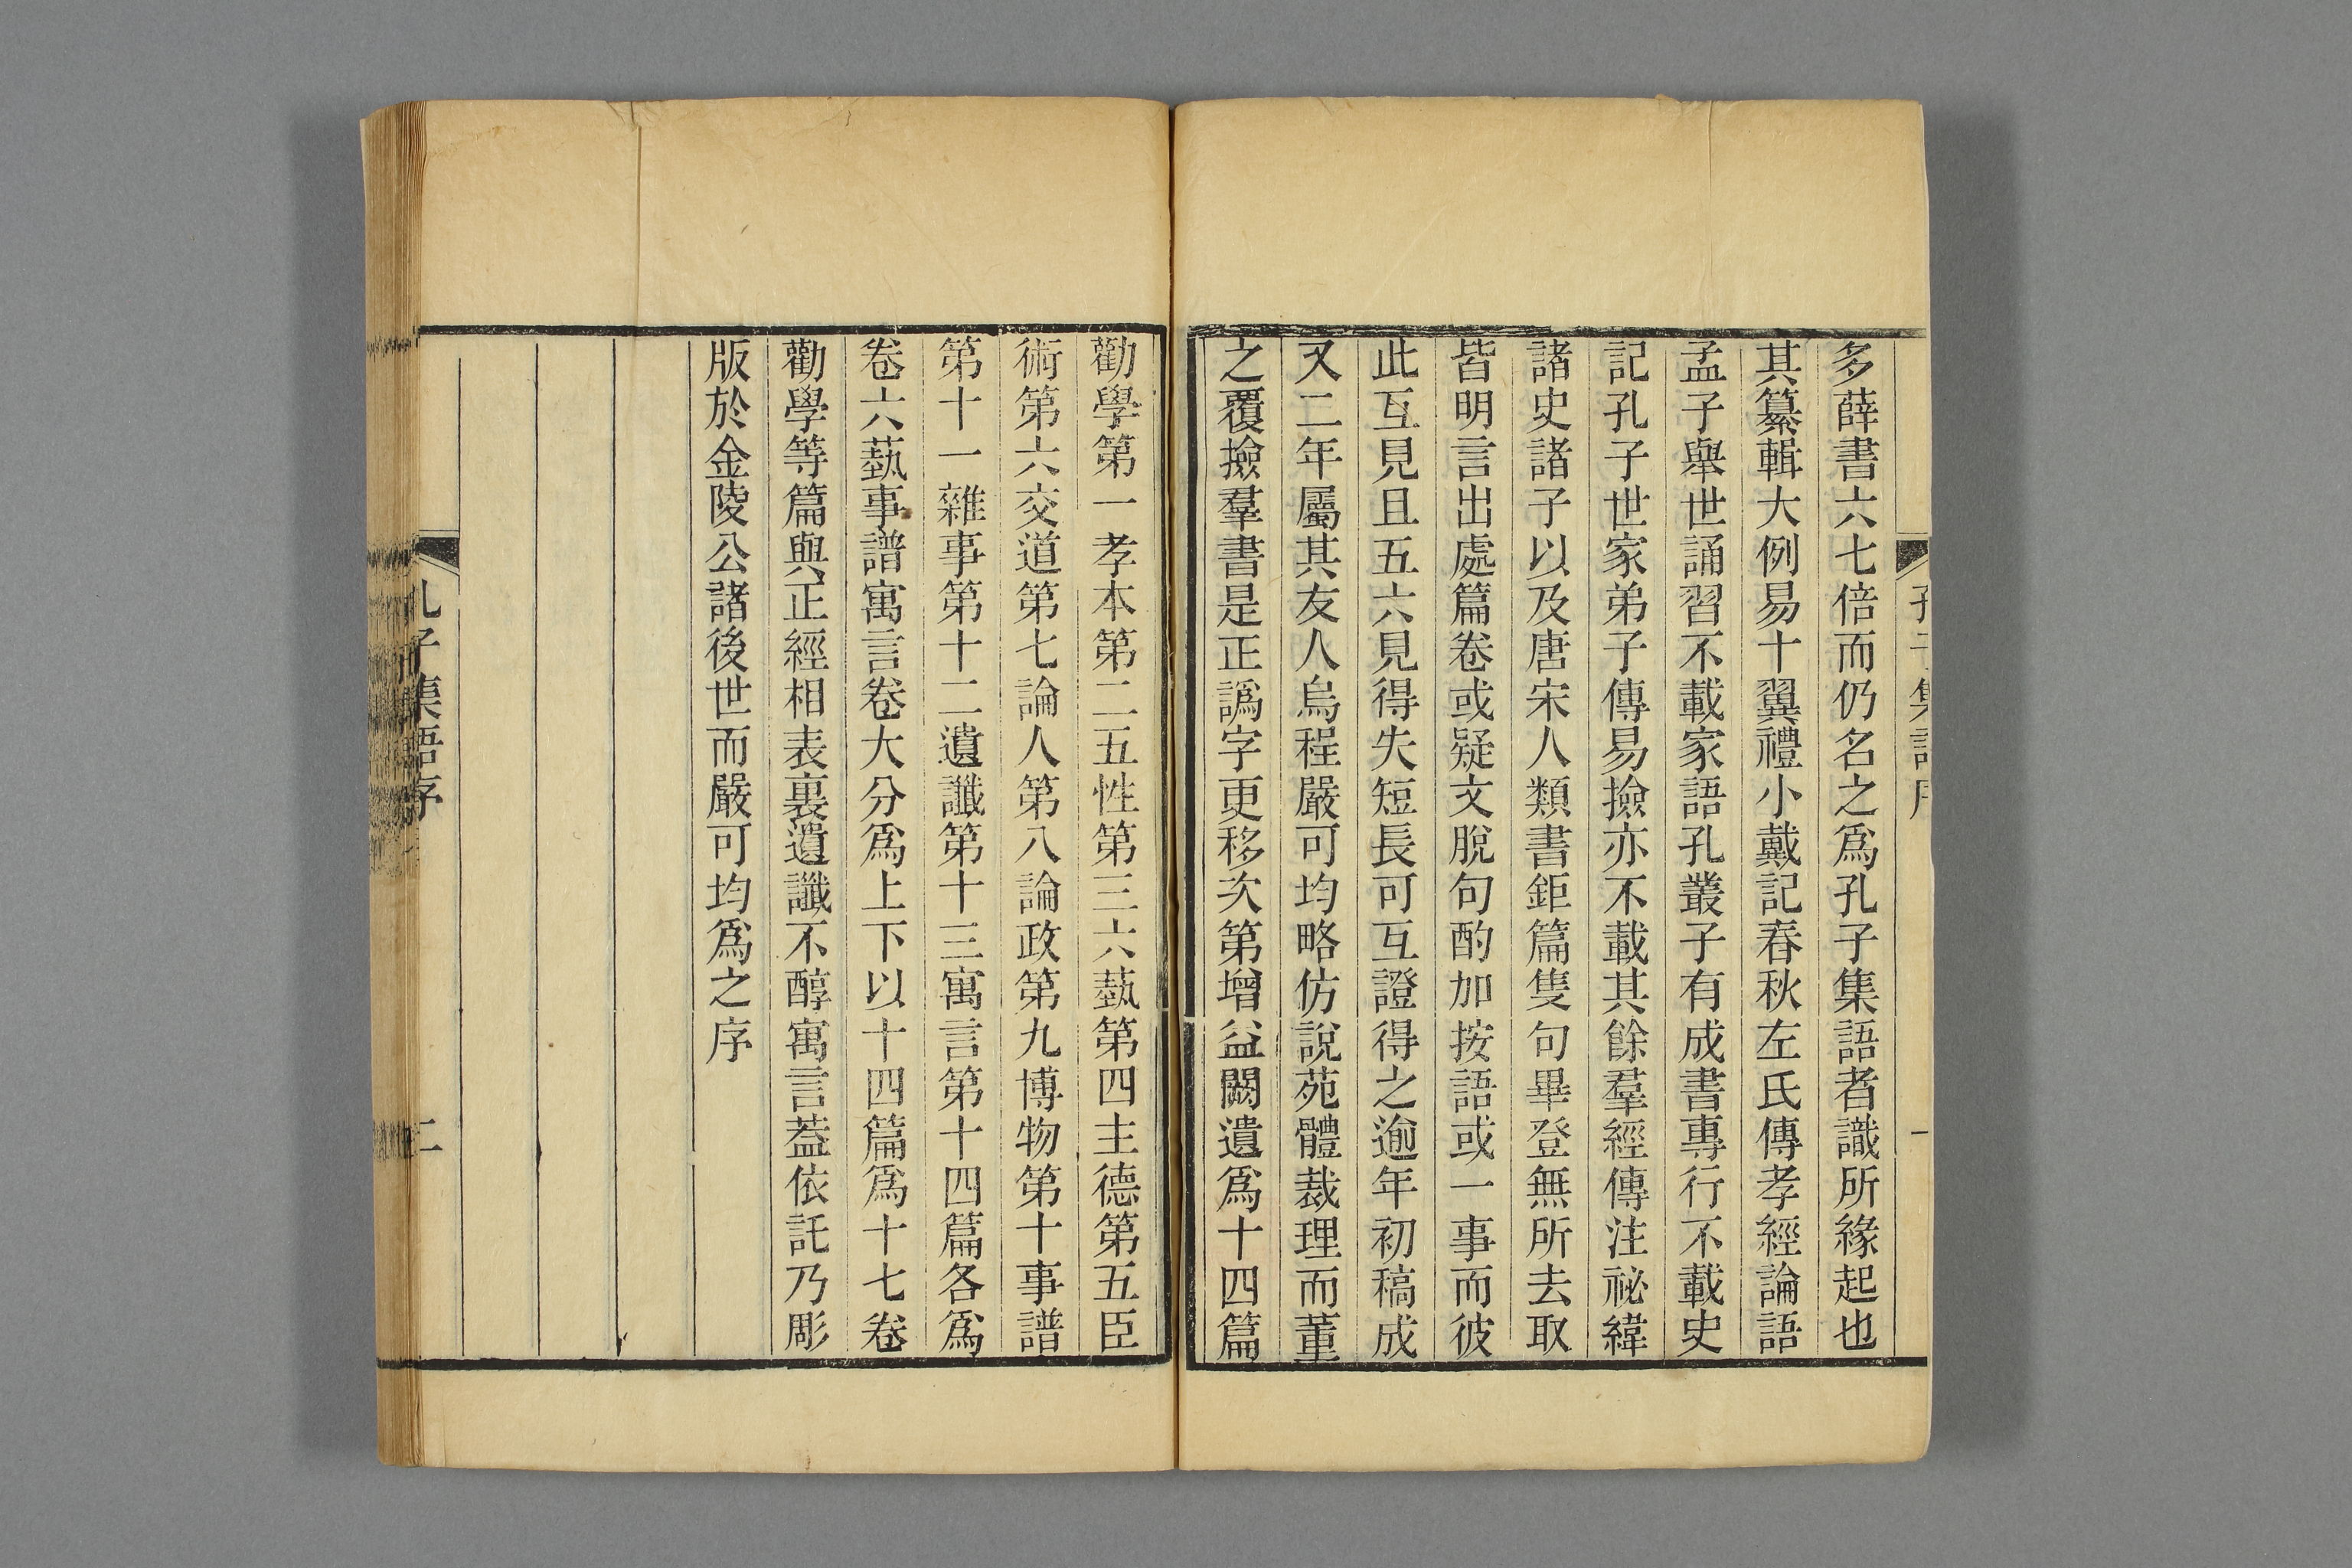 孔子集語序
一
多薛書六七倍而仍名之爲孔子集語者識所緣起也
其纂輯大例易十翼禮小戴記春秋左氏傳孝經論語
孟子舉世誦習不載家語孔叢子有成書專行不載史
記孔子世家弟子傳易撿亦不載其餘羣經傳注祕緯
諸史諸子以及唐宋人類書鉅篇隻句畢登無所去取
皆明言出處篇卷或疑文脫句酌加按語或一事而彼
此互見且五六見得失短長可互證得之逾年初稿成
又二年屬其友人烏程嚴可均略仿說苑體裁理而董
之覆撿羣書是正譌字更移次第增益闕遺爲十四篇
勸學第一孝本第二五性第三六蓺第四主德第五臣
術第六交道第七論人第八論政第九博物第十事譜
第十一雜事第十二遺讖第十三寓言第十四篇各爲
卷六蓺事譜寓言卷大分爲上下以十四篇爲十七卷
勸學等篇與正經相表裏遺讖不醇寓言蓋依託乃彫
版於金陵公諸後世而嚴可均爲之序
孔子集語序
二